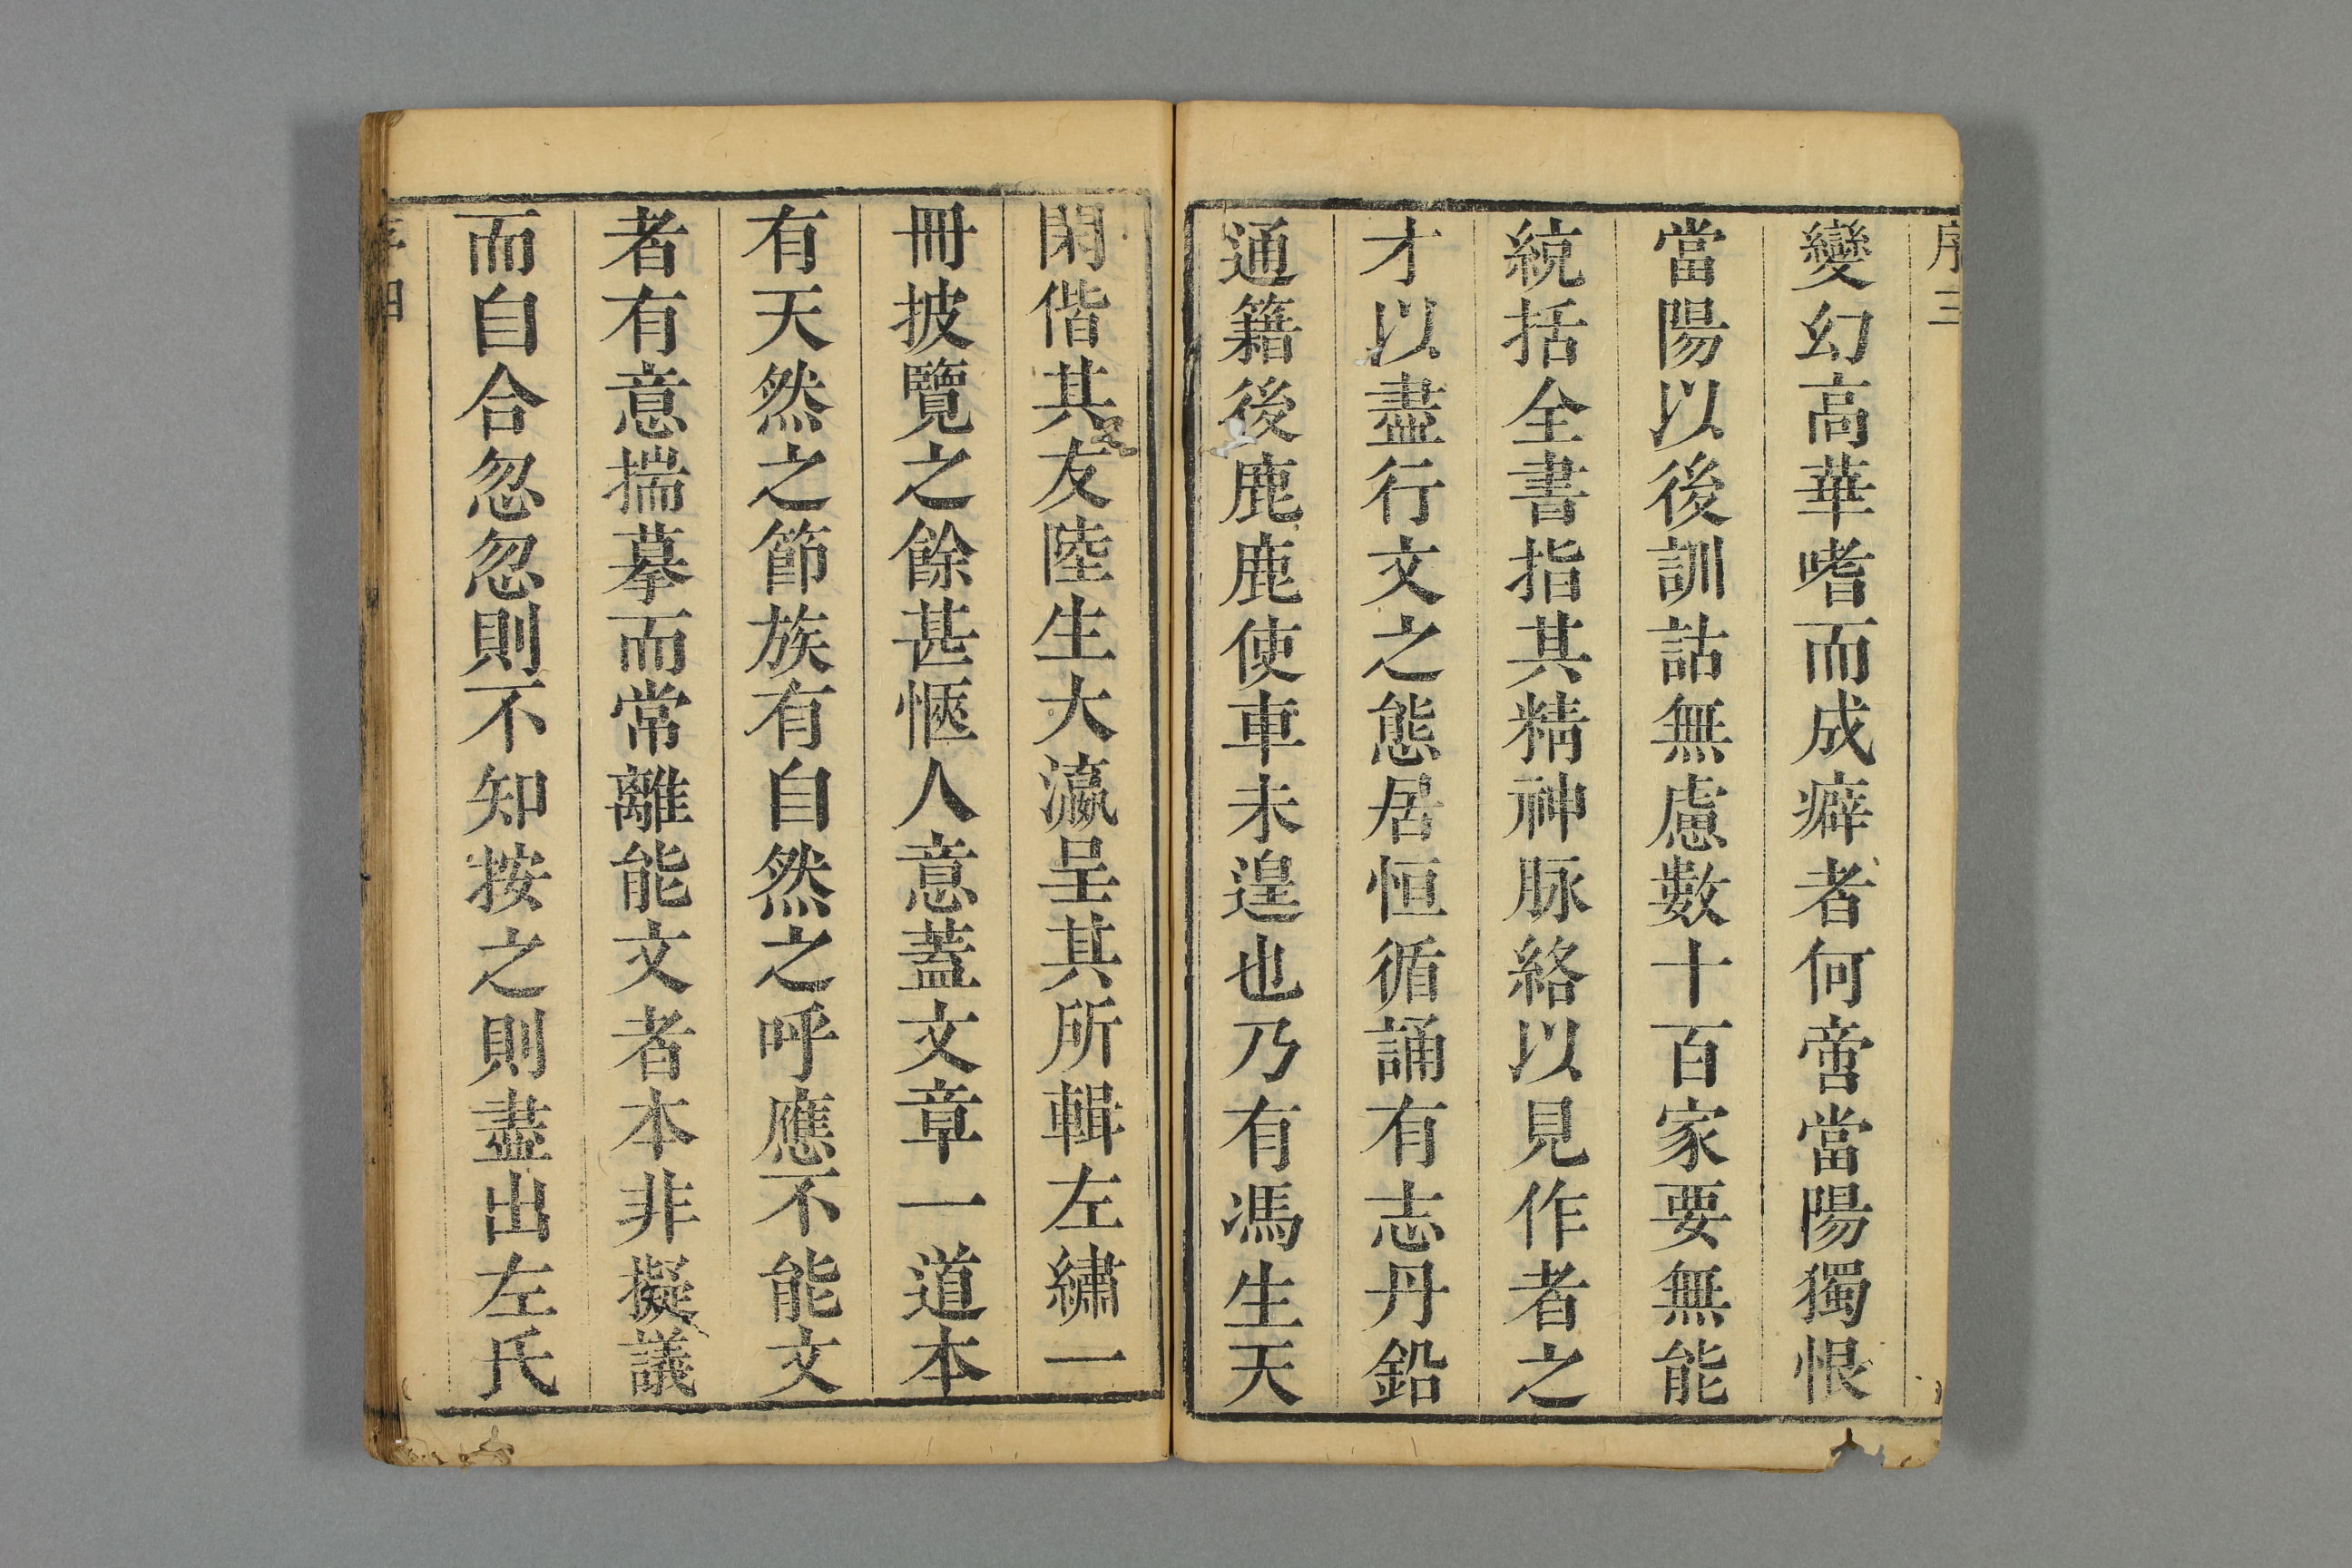 序三
變幻高華嗜而成癖者何啻當陽獨恨
當陽以後訓詁無慮數十百家要無能
統括全書指其精神脉絡以見作者之
才以盡行文之態居恒循誦有志丹鉛
通籍後鹿鹿使車未遑也乃有馮生天
閑偕其友陸生大瀛呈其所輯左繡一
冊披覽之餘甚愜人意蓋文章一道本
有天然之節族有自然之呼應不能文
者有意揣摹而常離能文者本非擬議
而自合忽忽則不知按之則盡出左氏
序四